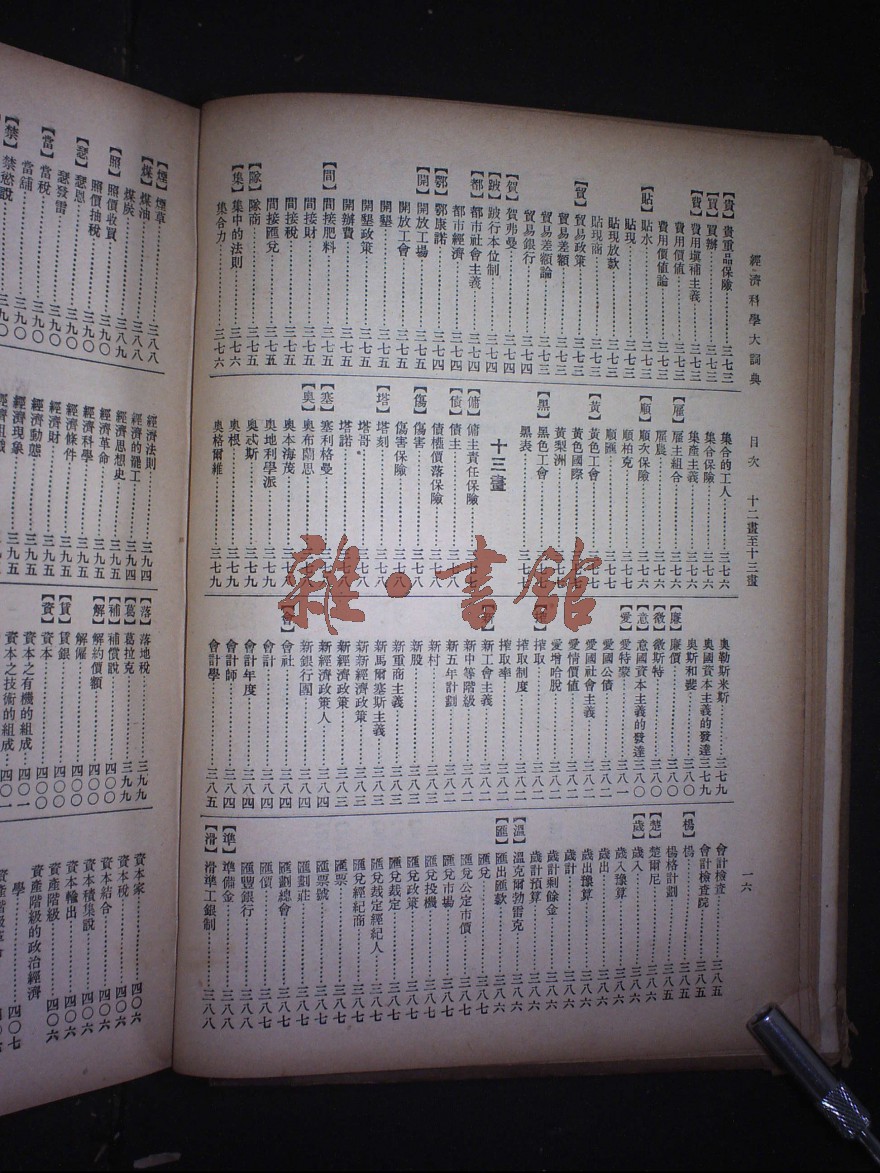 經濟科學大詞典 目次 十二畫至十三畫 一六
【貴】貴重品保險 三七三
【買】買辦 三七三
【費】費用塡補主義 三七三
費用價値 三七三
費用價値論 三七三
【貼】貼水 三七三
貼現 三七三
貼現放款 三七三
貼現商 三七三
【貿】貿易政策 三七三
貿易差額 三七三
貿易差額論 三七三
貿易銀行 三七四
【賀】賀弗曼 三七四
【跛】跛行本位制 三七四
【都】都市社會主義 三七四
都市經濟 三七四
【鄂】鄂康諾 三七四
【開】開放工場 三七四
開放工會 三七五
開墾 三七五
開墾政策 三七五
開辦費 三七五
【間】間接肥料 三七五
間接財 三七五
間接稅 三七五
間接匯兌 三七五
【隊】隊商 三七五
【集】集中的法則 三七六
集合力 三七六
集合的工人 三七六
集合保險 三七六
集產主義 三七六
【雇】雇主組合 三七六
雇農 三七六
【順】順次保險 三七六
順柏克 三七七
順匯 三七七
【黃】黃色工會
黃色國際
黃梨洲
【黑】黑色工會
黑表 三七七
十三畫
【傭】傭主責任保險
【債】債主
債權價落保險 三七八
【傷】傷害
傷害保險
【塔】塔刻
塔哥
塔諾
【塞】塞利格曼
【奧】奧布蘭思
奧本海茂
奧地利學派 三七九
奧忒斯 三七九
奧根 三七九
奧格爾維 三七九
奧勒斯米斯 三七九
奧國資本主義的發達 三七九
奧斯和裴 三八〇
【廉】廉價 三八〇
【微】微斯特 三八〇
【意】意國資本主義的發達 三八〇
【愛】愛特蒙 三八一
愛國公債 三八二
愛國社會主義 三八二
愛情價値 三八二
愛增哈脫 三八二
搾取 三八二
搾取制度 三八二
搾取率 三八二
新工會主義 三八二
新中等階級 三八二
新五年計劃 三八二
新村 三八二
新股 三八三
新重商主義 三八三
新馬爾塞斯主義 三八三
新新經濟政策 三八三
新經濟政策 三八三
新經濟政策人 三八四
新銀行團 三八四
【會】會社 三八四
會計 三八四
會計年度 三八四
會計師 三八四
會計學 三八五
會計檢查 三八五
會計檢查院 三八五
【楊】楊 三八五
楊格計劃 三八五
【楚】楚爾尼 三八六
【歲】歲入 三八六
歲入豫算 三八六
歲出 三八六
歲出豫算 三八六
歲計 三八六
歲計剩餘金 三八六
歲計預算 三八六
【溫】溫克爾勃雷克 三八六
【匯】匯出匯款 三八六
匯兌 三八六
匯兌公定市價 三八七
匯兌市場 三八七
匯兌投機 三八七
匯兌政策 三八七
匯兌裁定 三八七
匯兌裁定經紀人 三八七
匯兌經紀商 三八七
匯票 三八七
匯票號 三八七
匯劃莊 三八七
匯劃總會 三八七
匯價 三八七
匯豐銀行 三八七
【準】準備金 三八八
【滑】滑準工銀制 三八八
【煙】煙草 三八八
【煤】煤油 三八八
煤炭 三八九
【照】照價收買 三九〇
照價抽稅 三九〇
【瑟】瑟恩 三九〇
瑟發雷 三九〇
【當】當稅 三九〇
當舖 三九〇
【禁】禁慾說 三九〇
經濟法則 三九四
經濟的罷工 三九四
經濟思想史 三九五
經濟革命 三九五
經濟科學 三九五
經濟條件 三九五
經濟財 三九五
經濟動態 三九五
經濟現象 三九五
經濟組織
【落】落地稅 三九九
【葛】葛拉克 三九九
【補】補償說 四〇〇
【解】解約價額 四〇〇
解雇 四〇〇
【賃】賃銀 四〇〇
【資】資本 四〇〇
資本之有機的組成 四〇一
資本之技術的組成 四〇一
資本家 四〇六
資本稅 四〇六
資本結合 四〇六
資本積集說 四〇六
資本輸出 四〇六
資產階級 四〇六
資產階級的政治經濟
學 四〇七
雜·書館